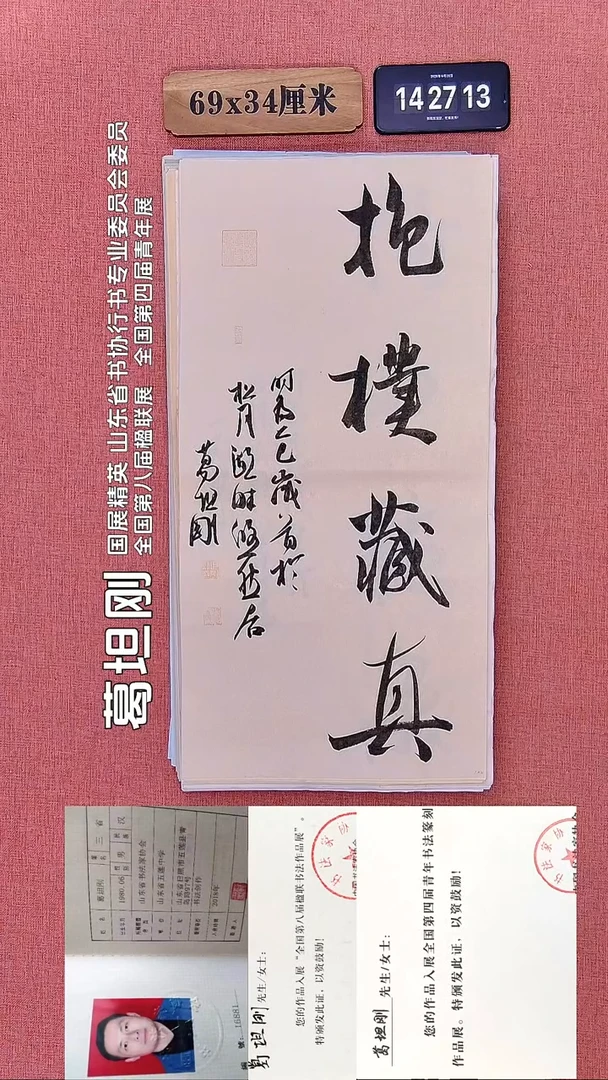 69x34厘米
14 27 13
葛坦刚
国展精英 山东省书协行书专业委员会委员
全国第八届楹联展 全国第四届青年展
抱
樸
藏
真
时为乙巳岁首於
松月
后
葛坦刚
葛坦刚
1980.06
男
汉
山东省书法家协会
山东省五莲中学
书法创作
號:16881
葛坦刚 先生/女士:
您的作品入展“全国第八届楹联书法作品展”。
特颁发此证,以资鼓励!
葛坦刚 先生/女士:
您的作品入展全国第四届青年书法篆刻
作品展。特颁发此证,以资鼓励!